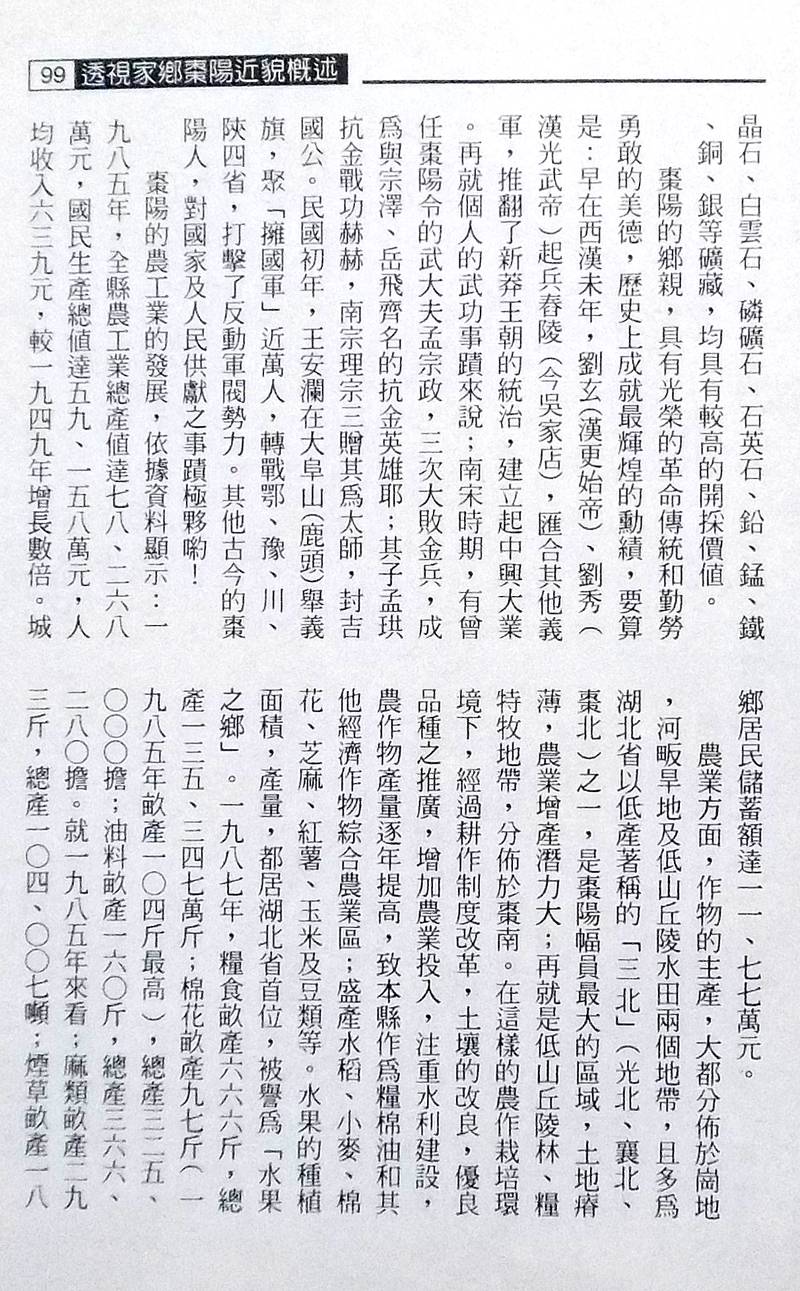 99 透視家鄉棗陽近貌概述
晶石、白雲石、磷礦石、石英石、鉛、錳、鐵
、銅、銀等礦藏，均具有較高的開採價值。
棗陽的鄉親，具有光榮的革命傳統和勤勞
勇敢的美德，歷史上成就最輝煌的勳績，要算
是：早在西漢末年，劉玄（漢更始帝）、劉秀（
漢光武帝）起兵舂陵（今吳家店），匯合其他義
軍，推翻了新莽王朝的統治，建立起中興大業
。再就個人的武功事蹟來說；南宋時期，有曾
任棗陽令的武大夫孟宗政，三次大敗金兵，成
爲與宗澤、岳飛齊名的抗金英雄耶；其子孟珙
抗金戰功赫赫，南宗理宗三贈其爲太師，封吉
國公。民國初年，王安瀾在大阜山（鹿頭）舉義
旗，聚「擁國軍」近萬人，轉戰鄂、豫、川、
陝四省，打擊了反動軍閥勢力。其他古今的棗
陽人，對國家及人民供獻之事蹟極夥喲！
棗陽的農工業的發展，依據資料顯示：一
九八五年，全縣農工業總產值達七八、二六八
萬元，國民生產總值達五九、一五八萬元，人
均收入六三九元，較一九四九年增長數倍。城
鄉居民儲蓄額達一一、七七萬元。
農業方面，作物的主產，大都分佈於崗地
，河畈旱地及低山丘陵水田兩個地帶，且多爲
湖北省以低產著稱的「三北」（光北、襄北、
棗北）之一，是棗陽幅員最大的區域，土地瘠
薄，農業增產潛力大；再就是低山丘陵林、糧
特牧地帶，分佈於棗南。在這樣的農作栽培環
境下，經過耕作制度改革，土壤的改良，優良
品種之推廣，增加農業投入，注重水利建設，
農作物產量逐年提高，致本縣作爲糧棉油和其
他經濟作物綜合農業區；盛產水稻、小麥、棉
花、芝麻、紅薯、玉米及豆類等。水果的種植
面積，產量，都居湖北省首位，被譽爲「水果
之鄉」。一九八七年，糧食畝產六六六斤，總
產一三五、三四七萬斤；棉花畝產九七斤（一
九八五年畝產一〇四斤最高），總產三二五、
〇〇〇擔；油料畝產一六〇斤，總產三六六、
二八〇擔。就一九八五年來看；麻類畝產二九
三斤，總產一〇四、〇〇七噸；煙草畝產一八